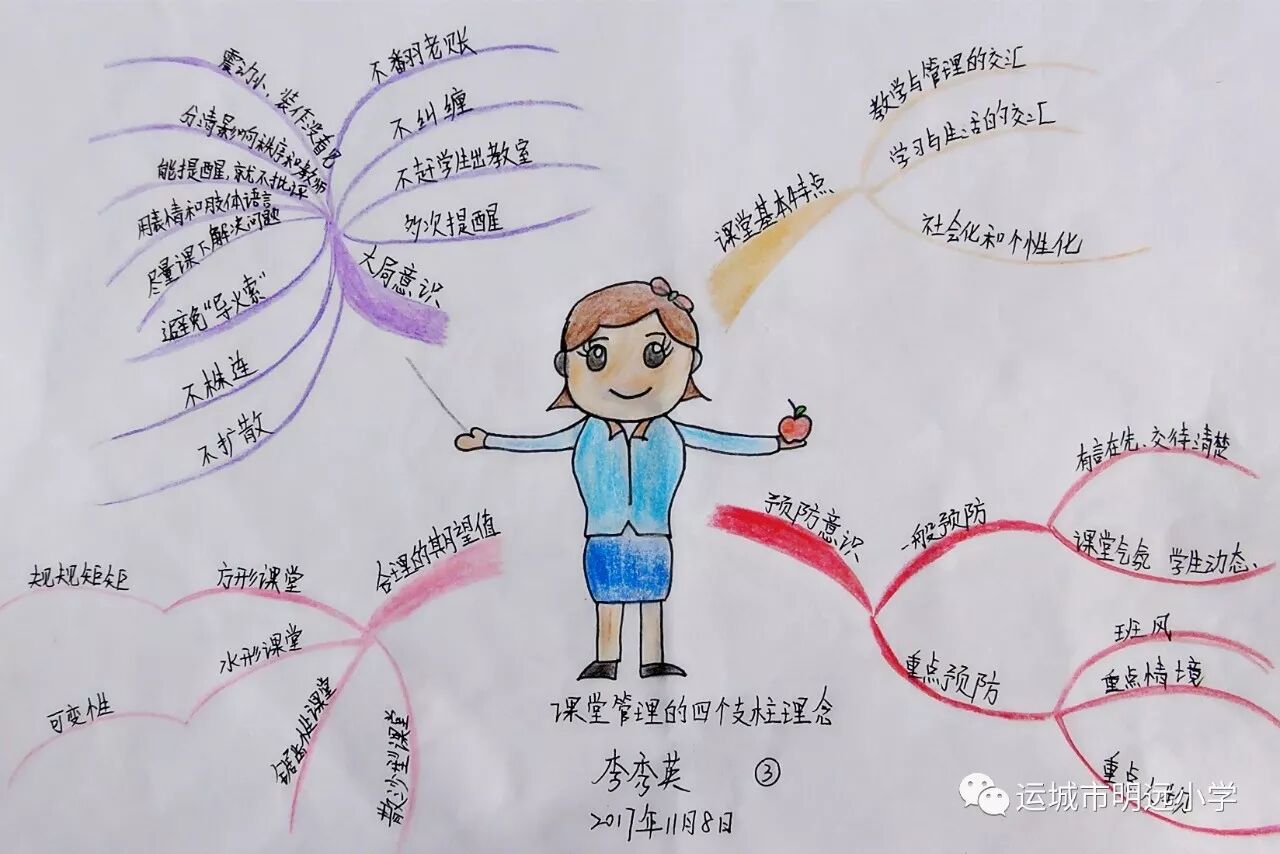 不翻老账
不纠缠
不赶学生出教室
多次提醒
震动小、装作没看见
分清影响秩序和教师
能提醒,就不批评
用表情和肢体语言
尽量课下解决问题
避免“导火索”
不株连
不扩散
大局意识
教学与管理的交汇
学习与生活的交汇
社会化和个性化
课堂基本特点
预防意识
一般预防
有言在先、交待清楚
课堂气氛 学生动态、
重点预防
班风
重点情境
重点
合理的期望值
方形课堂
规规矩矩
水形课堂
可变性
锯齿性课堂
散沙型课堂
课堂管理的四个支柱理念
李秀英 ③
2017年11月8日
运城市明远小学